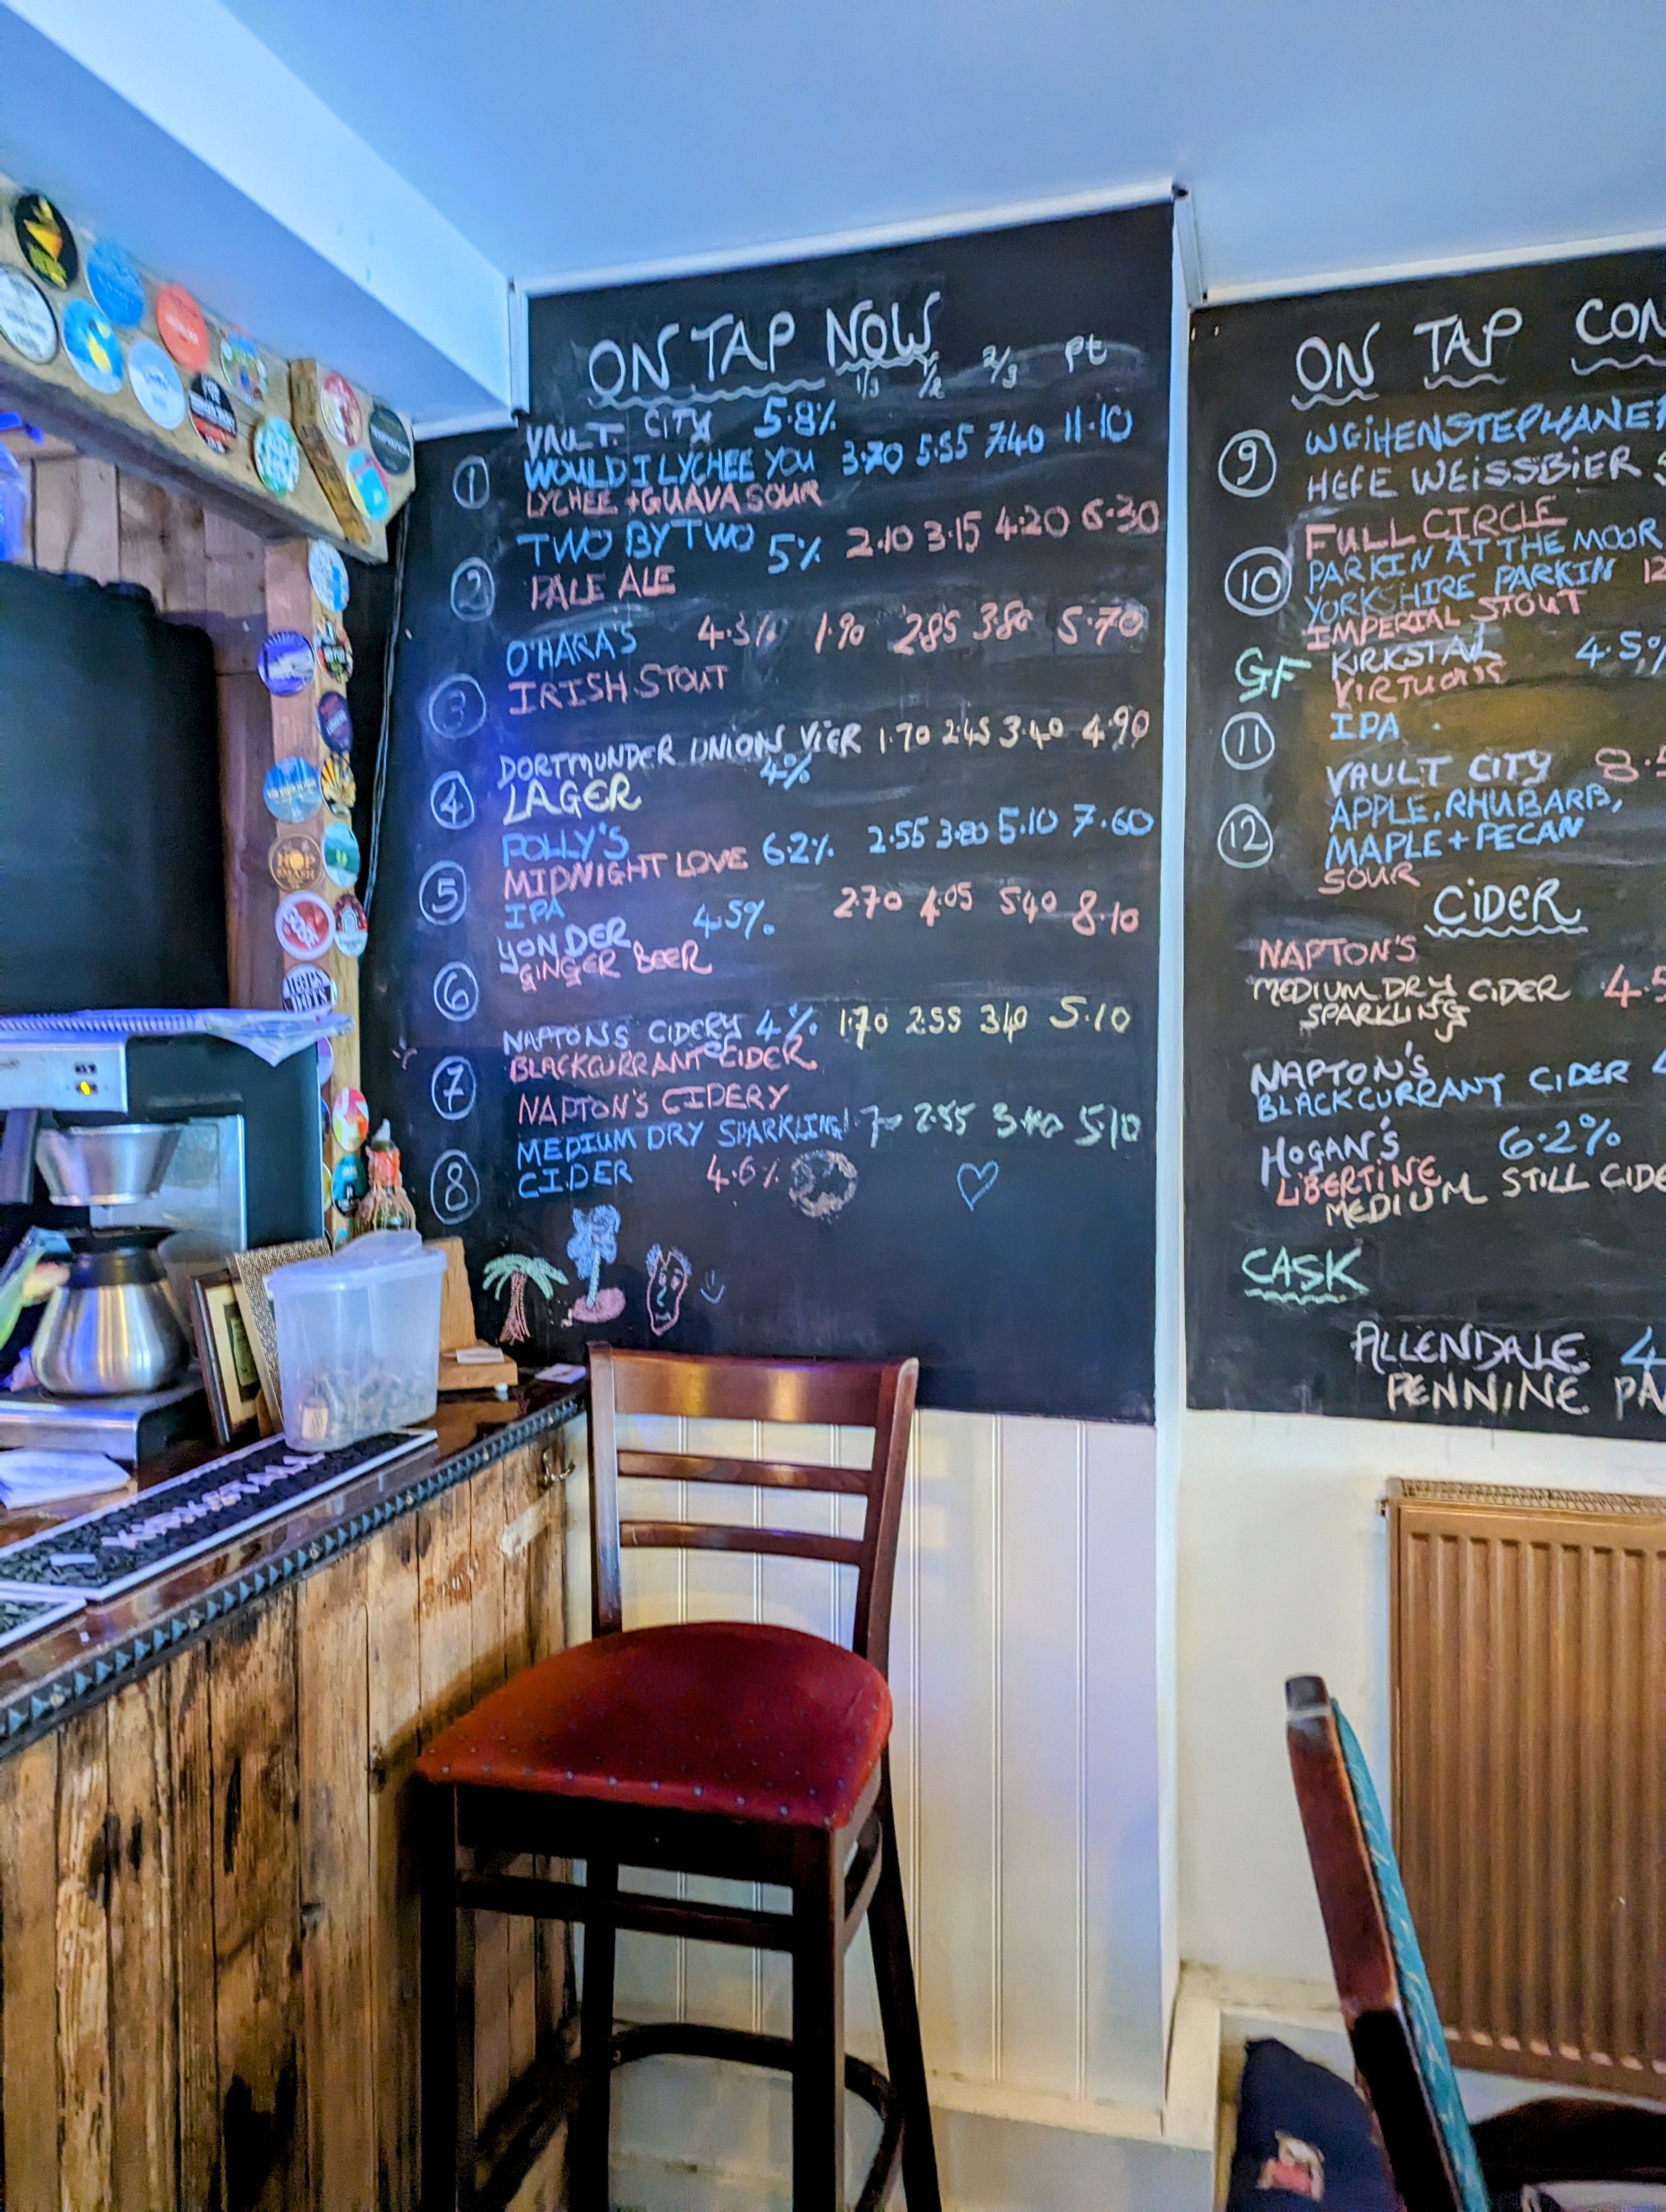 ON TAP NOW
1/3 1/2 2/3 pt
① VAULT CITY 5.8%
WOULD I LYCHEE YOU 3.70 5.55 7.40 11.10
LYCHEE + GUAVA SOUR
② TWO BY TWO 5% 2.10 3.15 4.20 6.30
PALE ALE
③ O'HARA'S 4.3% 1.90 2.85 3.80 5.70
IRISH STOUT
④ DORTMUNDER UNION VIER 1.70 2.45 3.40 4.90
4%
LAGER
⑤ POLLY'S
MIDNIGHT LOVE 6.2% 2.55 3.80 5.10 7.60
IPA
⑥ YONDER 4.5% 2.70 4.05 5.40 8.10
GINGER BEER
⑦ NAPTONS CIDERY 4% 1.70 2.55 3.40 5.10
BLACKCURRANT CIDER
⑧ NAPTON'S CIDERY
MEDIUM DRY SPARKLING 1.70 2.55 3.40 5.10
CIDER 4.6%
ON TAP CON
⑨ WEIHENSTEPHANER
HEFE WEISSBIER 5
⑩ FULL CIRCLE
PARKIN AT THE MOOR
YORKSHIRE PARKIN 12
IMPERIAL STOUT
GF KIRKSTALL 4.5%
VIRTUOUS
⑪ IPA
⑫ VAULT CITY 8.5
APPLE, RHUBARB,
MAPLE + PECAN
SOUR
CIDER
NAPTON'S
MEDIUM DRY CIDER 4.5
SPARKLING
NAPTON'S
BLACKCURRANT CIDER 4
HOGAN'S 6.2%
LIBERTINE
MEDIUM STILL CIDE
CASK
ALLENDALE 4
PENNINE PA
HOP
SMASH
KIRKSTALL